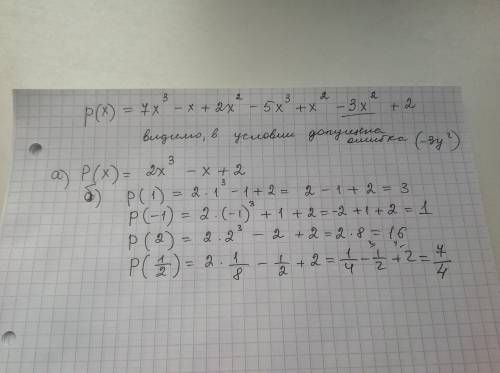 p(x) = 7x³ - x + 2x² - 5x³ + x² - 3x² + 2
видимо, в условии допущена
ошибка (-3y²)
а) P(x) = 2x³ - x + 2
б) p(1) = 2·1³ - 1 + 2 = 2 - 1 + 2 = 3
p(-1) = 2·(-1)³ + 1 + 2 = -2 + 1 + 2 = 1
p(2) = 2·2³ - 2 + 2 = 2·8 = 16
P(1/2) = 2·1/8 - 1/2 + 2 = 1/4 - 1/2 + 2 = 7/4